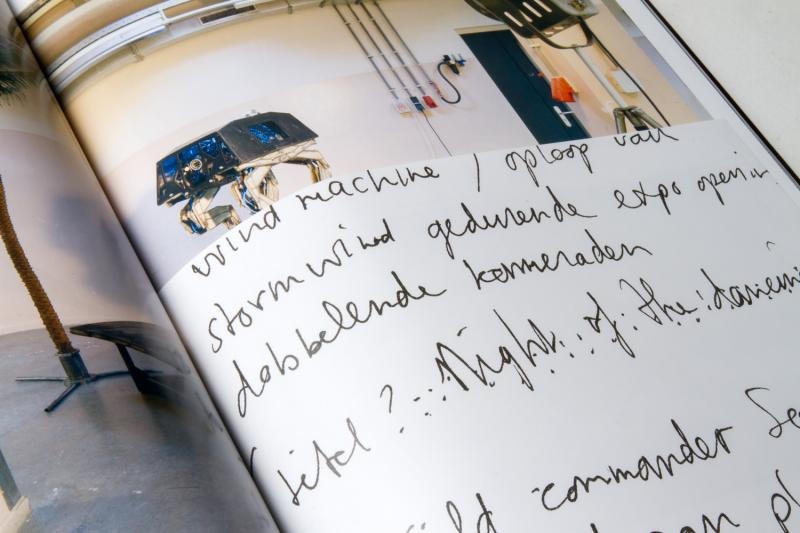 wind machine / oploop van
stormwind gedurende expo openin
dobbelende kameraden
titel? ... Night of the
commander Se